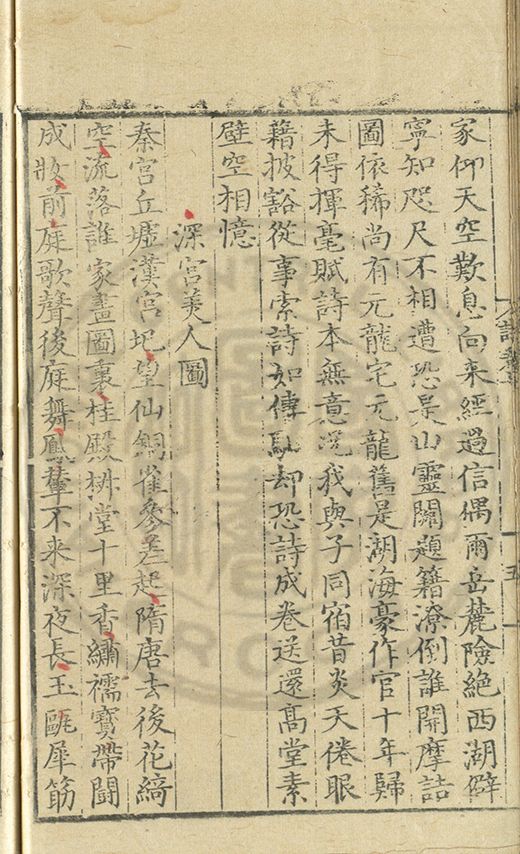 家仰天空歎息向来經過信偶爾岳麓險絶西湖僻
寧知咫尺不相遭恐是山靈關題籍潦倒誰開摩詰
圖依稀尚有元龍宅元龍舊是湖海豪作官十年歸
未得揮毫賦詩本無意况我與子同宿昔炎天倦眼
藉披豁從事索詩如傳馭却恐詩成卷送還髙堂素
壁空相憶
深宮美人圖
秦宮丘墟漢宮圮望仙銅雀叅差起隋唐去後花縞
空流落誰家畫圖裏桂殿椒堂十里香繡襦寳帶鬪
成妝前庭歌聲後庭舞鳳輦不来深夜長玉甌犀筋
五